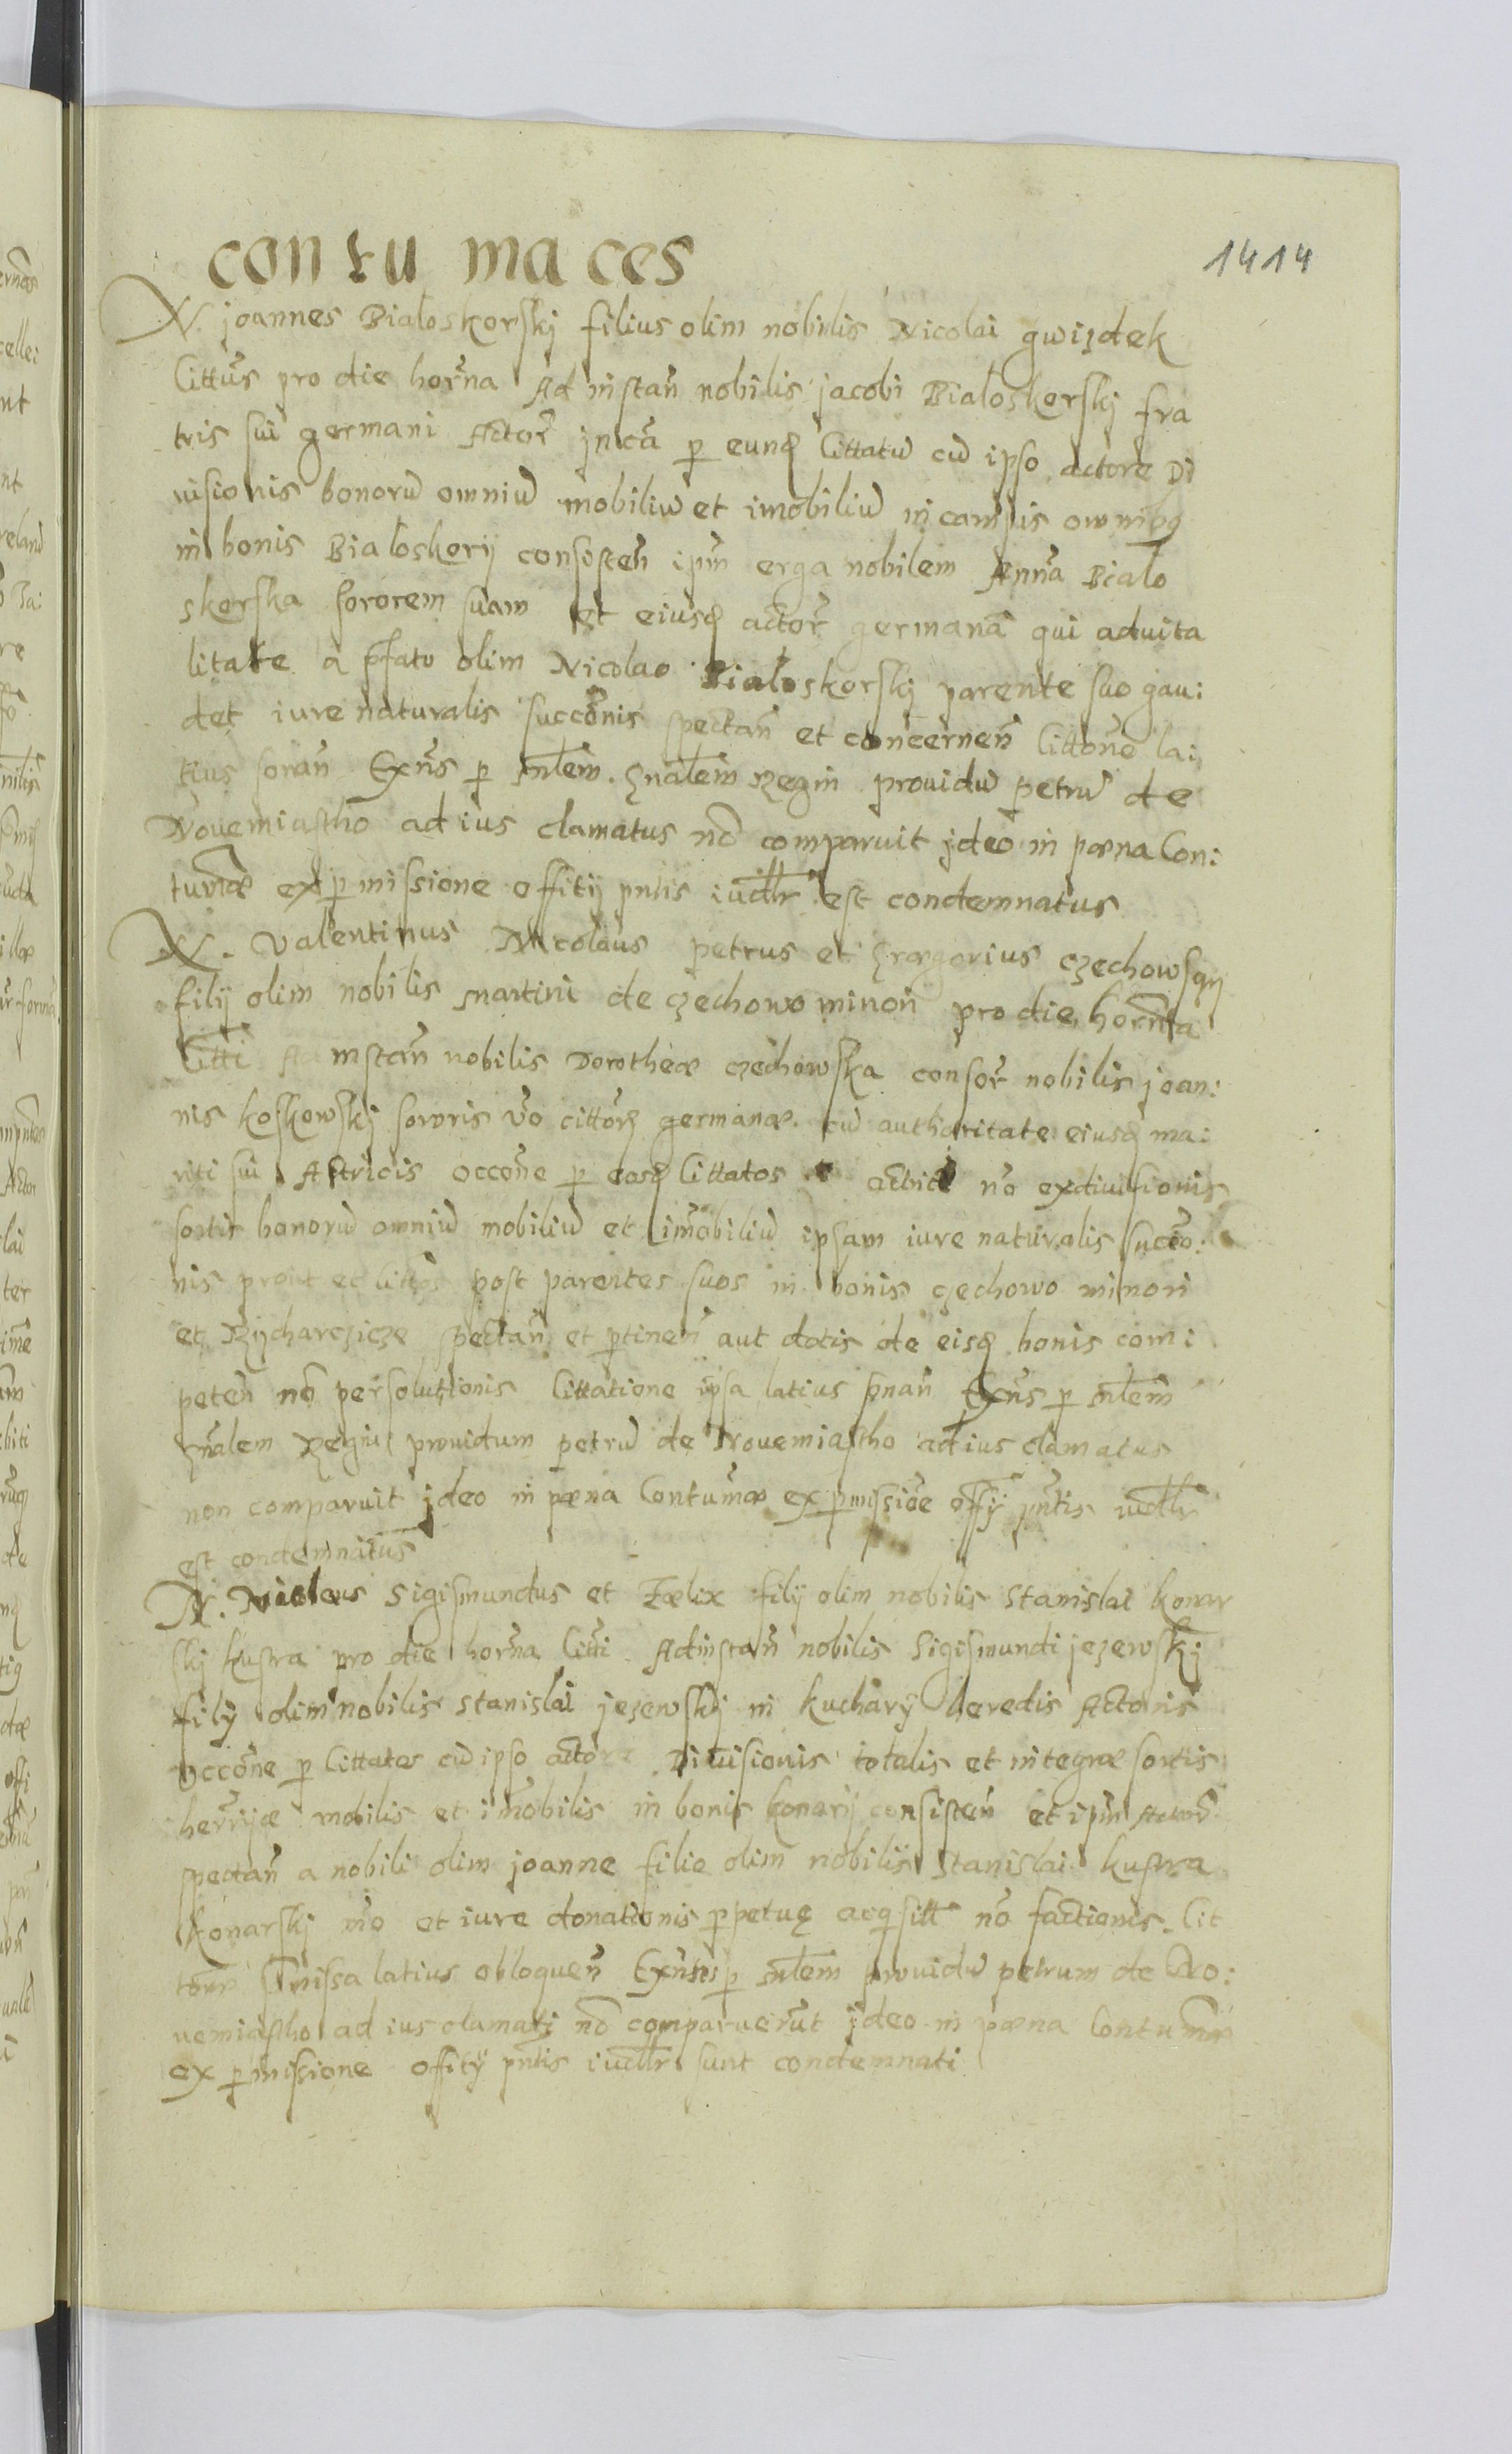 contumaces
1414
N. joannes Bialoskorskj filius olim nobilis Nicolai gwizdek
Cittus pro die horna Ad instan nobilis jacobi Bialoskorskj fra
tris sui germani Actor in ca p eund Cittatu cu ipso actore Di
uisionis bonoru omniu mobiliu et imobiliu in campis omnibq
in bonis Bialoskorij consisten ipm erga nobilem Anna Bialo
skorska sororem suam et eiusd actor germana qui aduita
litate a pfato olim Nicolao Bialoskorskj parente suo gau:
det iure naturalis succonis spectan et concernen Cittone la:
tius sonan Exns p mlem gnalem Regin prouidu petru de
Nouemiastho ad ius clamatus no comparuit jdeo in pæna Con:
tumæ ex pmissione offitij pntis iudlr est condemnatus
N. Valentinus Nicolaus petrus et gregorius czechowsqy
filij olim nobilis martini de czechowo minori pro die horna
Citti Ad instan nobilis Dorotheæ czechowska consor nobilis joan:
nis koskowskj sororis vo cittor germanæ cu authoritate eiusd ma:
riti sui Actricis occone p eosd Cittatos actrici no exdiuisionis
sortis bonoru omniu mobiliu et imobiliu ipsam iure naturalis succo:
nis prout et cittos post parentes suos in bonis czechowo minori
et Rycharczicze spectan et ptinen aut dotis de eisd bonis com:
peten no persolutionis Cittatione ipsa latius sonan Exns p mlem
gnalem Regiu prouidum petru de Nouemiastho ad ius clamatus
non comparuit jdeo in pæna Contumæ ex pmissioe offy pntis iudlr
est condemnatus
N. Nicolaus Sigismundus et Fælix filij olim nobilis Stanislai konar
skj kustra pro die horna Citti Ad instan nobilis Sigismundi jezewskj
filij olim nobilis stanislai jezewskj in kuchary heredis Actoris
occone p Cittatos cu ipso actore Diuisionis totalis et integræ sortis
herrijæ mobilis et imobilis in bonis konarij consisten et ipm Actore
spectan a nobili olim joanne filio olim nobilis Stanislai kustra
konarskj mo et iure donationis ppetuę acqsitt no factionis Cit
tone missa latius obloquen Exntes p mlem prouidu petrum de No:
uemiastho ad ius clamati no comparuerut jdeo in pæna Contumæ
ex pmissione offitij pntis iudlr sunt condemnati